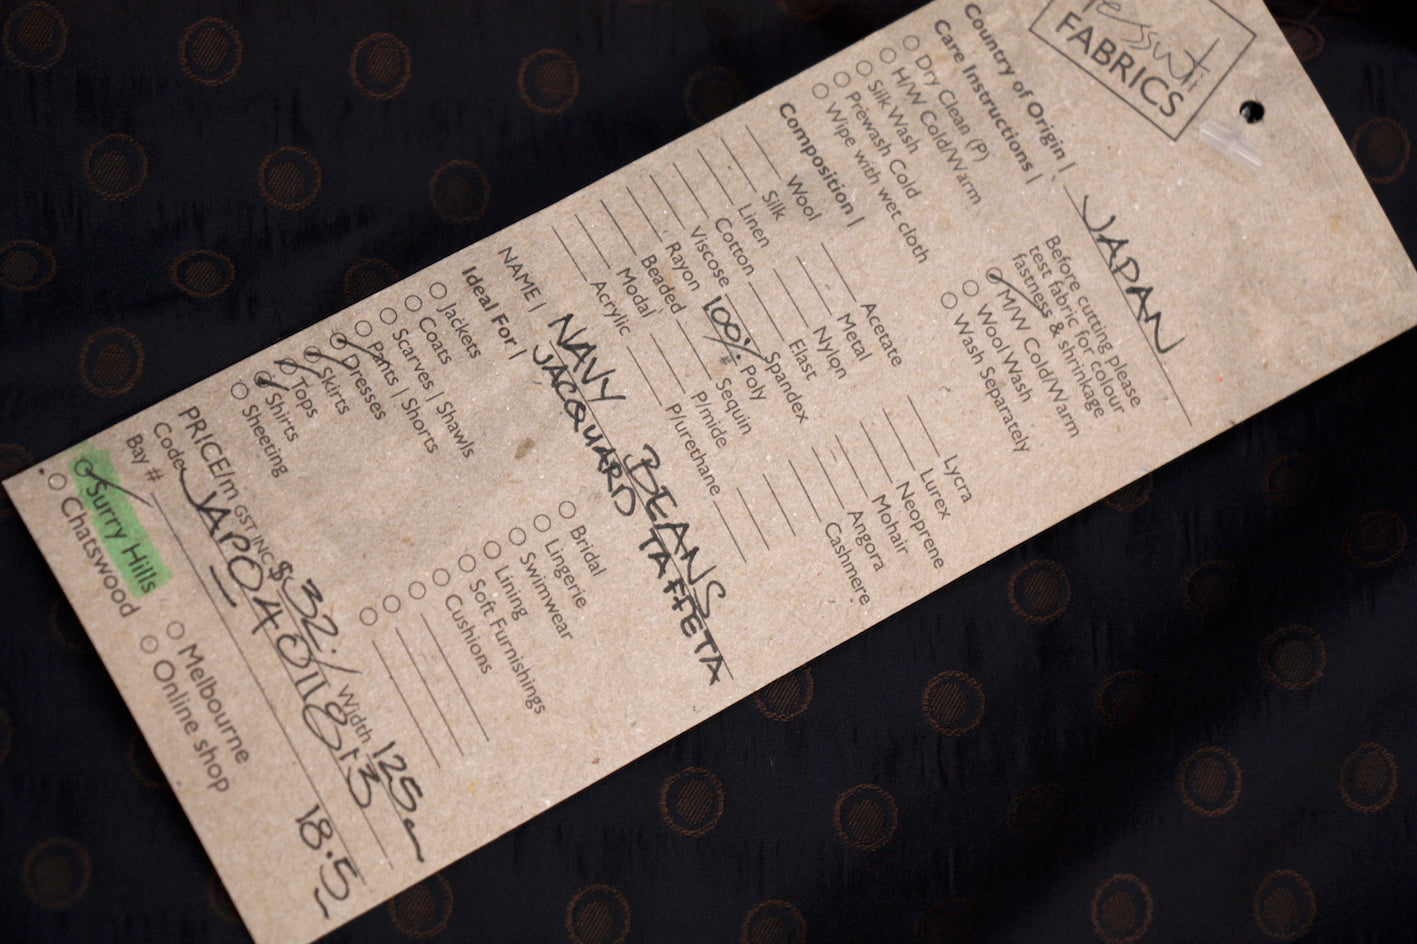 FABRICS
Country of Origin | JAPAN
Care Instructions |
Before cutting please
test fabric for colour
fastness & shrinkage
Dry Clean (P)
H/W Cold/Warm
Silk Wash
Prewash Cold
Wipe with wet cloth
M/W Cold/Warm
Wool Wash
Wash Separately
Composition |
Wool
Silk
Linen
Cotton
Viscose
Rayon
Beaded
Modal
Acrylic
Acetate
Metal
Nylon
Elast
Spandex
100% Poly
Sequin
P/mide
P/urethane
Lycra
Lurex
Neoprene
Mohair
Angora
Cashmere
NAME | NAVY BEANS
JACQUARD TAFFETA
Ideal For |
Jackets
Coats
Scarves | Shawls
Pants | Shorts
Dresses
Skirts
Tops
Shirts
Sheeting
Bridal
Lingerie
Swimwear
Lining
Soft Furnishings
Cushions
PRICE/m GST INC $ 32./ Width 125cm
Code JAP04011813
Bay # 18.5
Surry Hills
Chatswood
Melbourne
Online shop